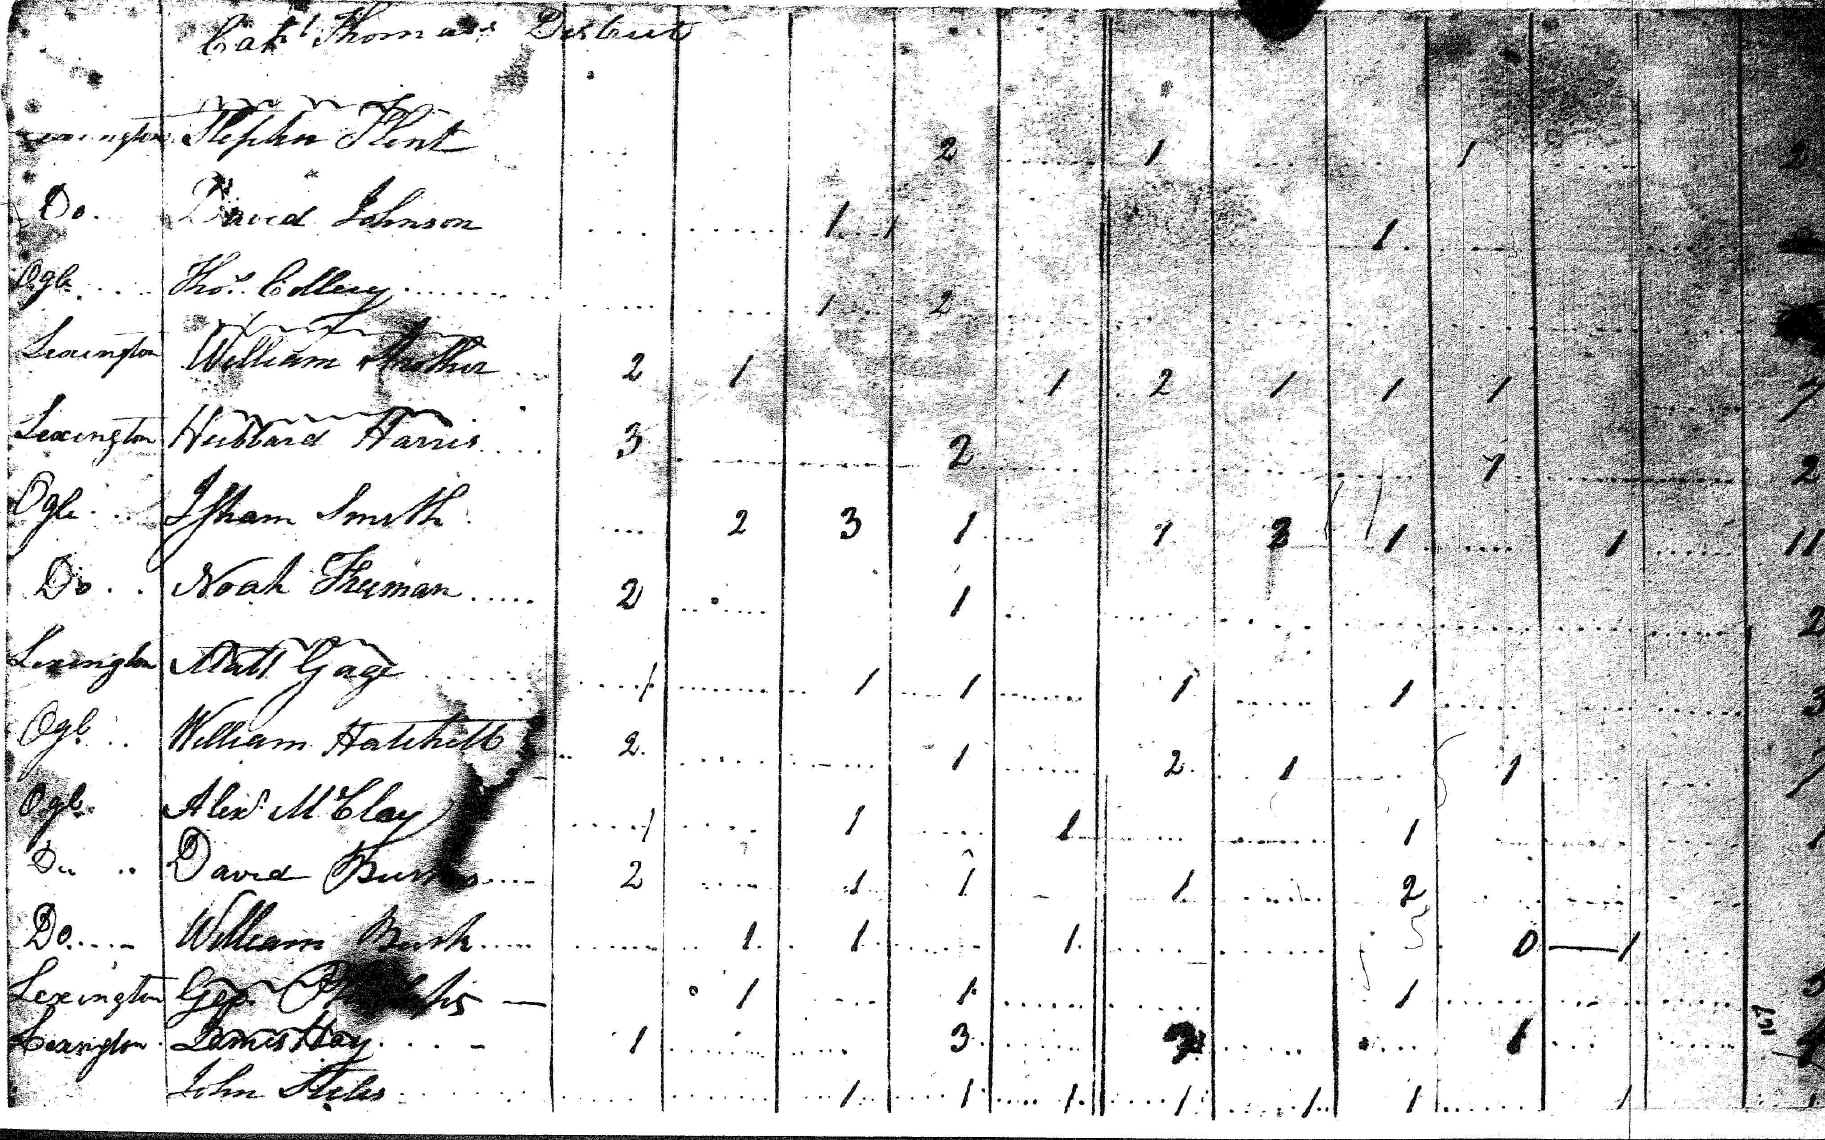 Capt Thomas's District
Stephen Flint 2 1 1 2
Do. David Johnson 1 1 1
Ogle Thos. Collery 1 2
Lexington William 2 1 1 2 1 1 1 7
Lexington Hubbard Harris 3 2 1 2
Ogle Isham Smith 2 3 1 1 2 1 1 11
Do Noah Freeman 2 1 2
Lexington Matt Gage 1 1 1 1 1 3
Ogle William Hatchett 2 1 2 1 1 7
Ogle Alexr. McClay 1 1 1 1 1
Do David 2 1 1 1 2
Do William Bush 1 1 1 0 — 1
Lexington Geo. 1 1 1
Lexington James Hay 1 3 1
John Stiles 1 1 1 1 1 1 1
167